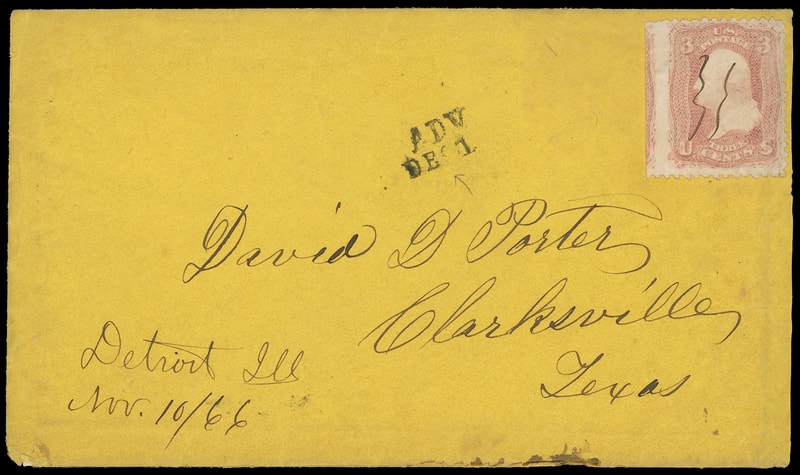 3 U.S. 3
POSTAGE
U THREE S
CENTS
ADV
DEC 1
David D Porter
Clarksville
Texas
Detroit Ill
Nov. 10/66